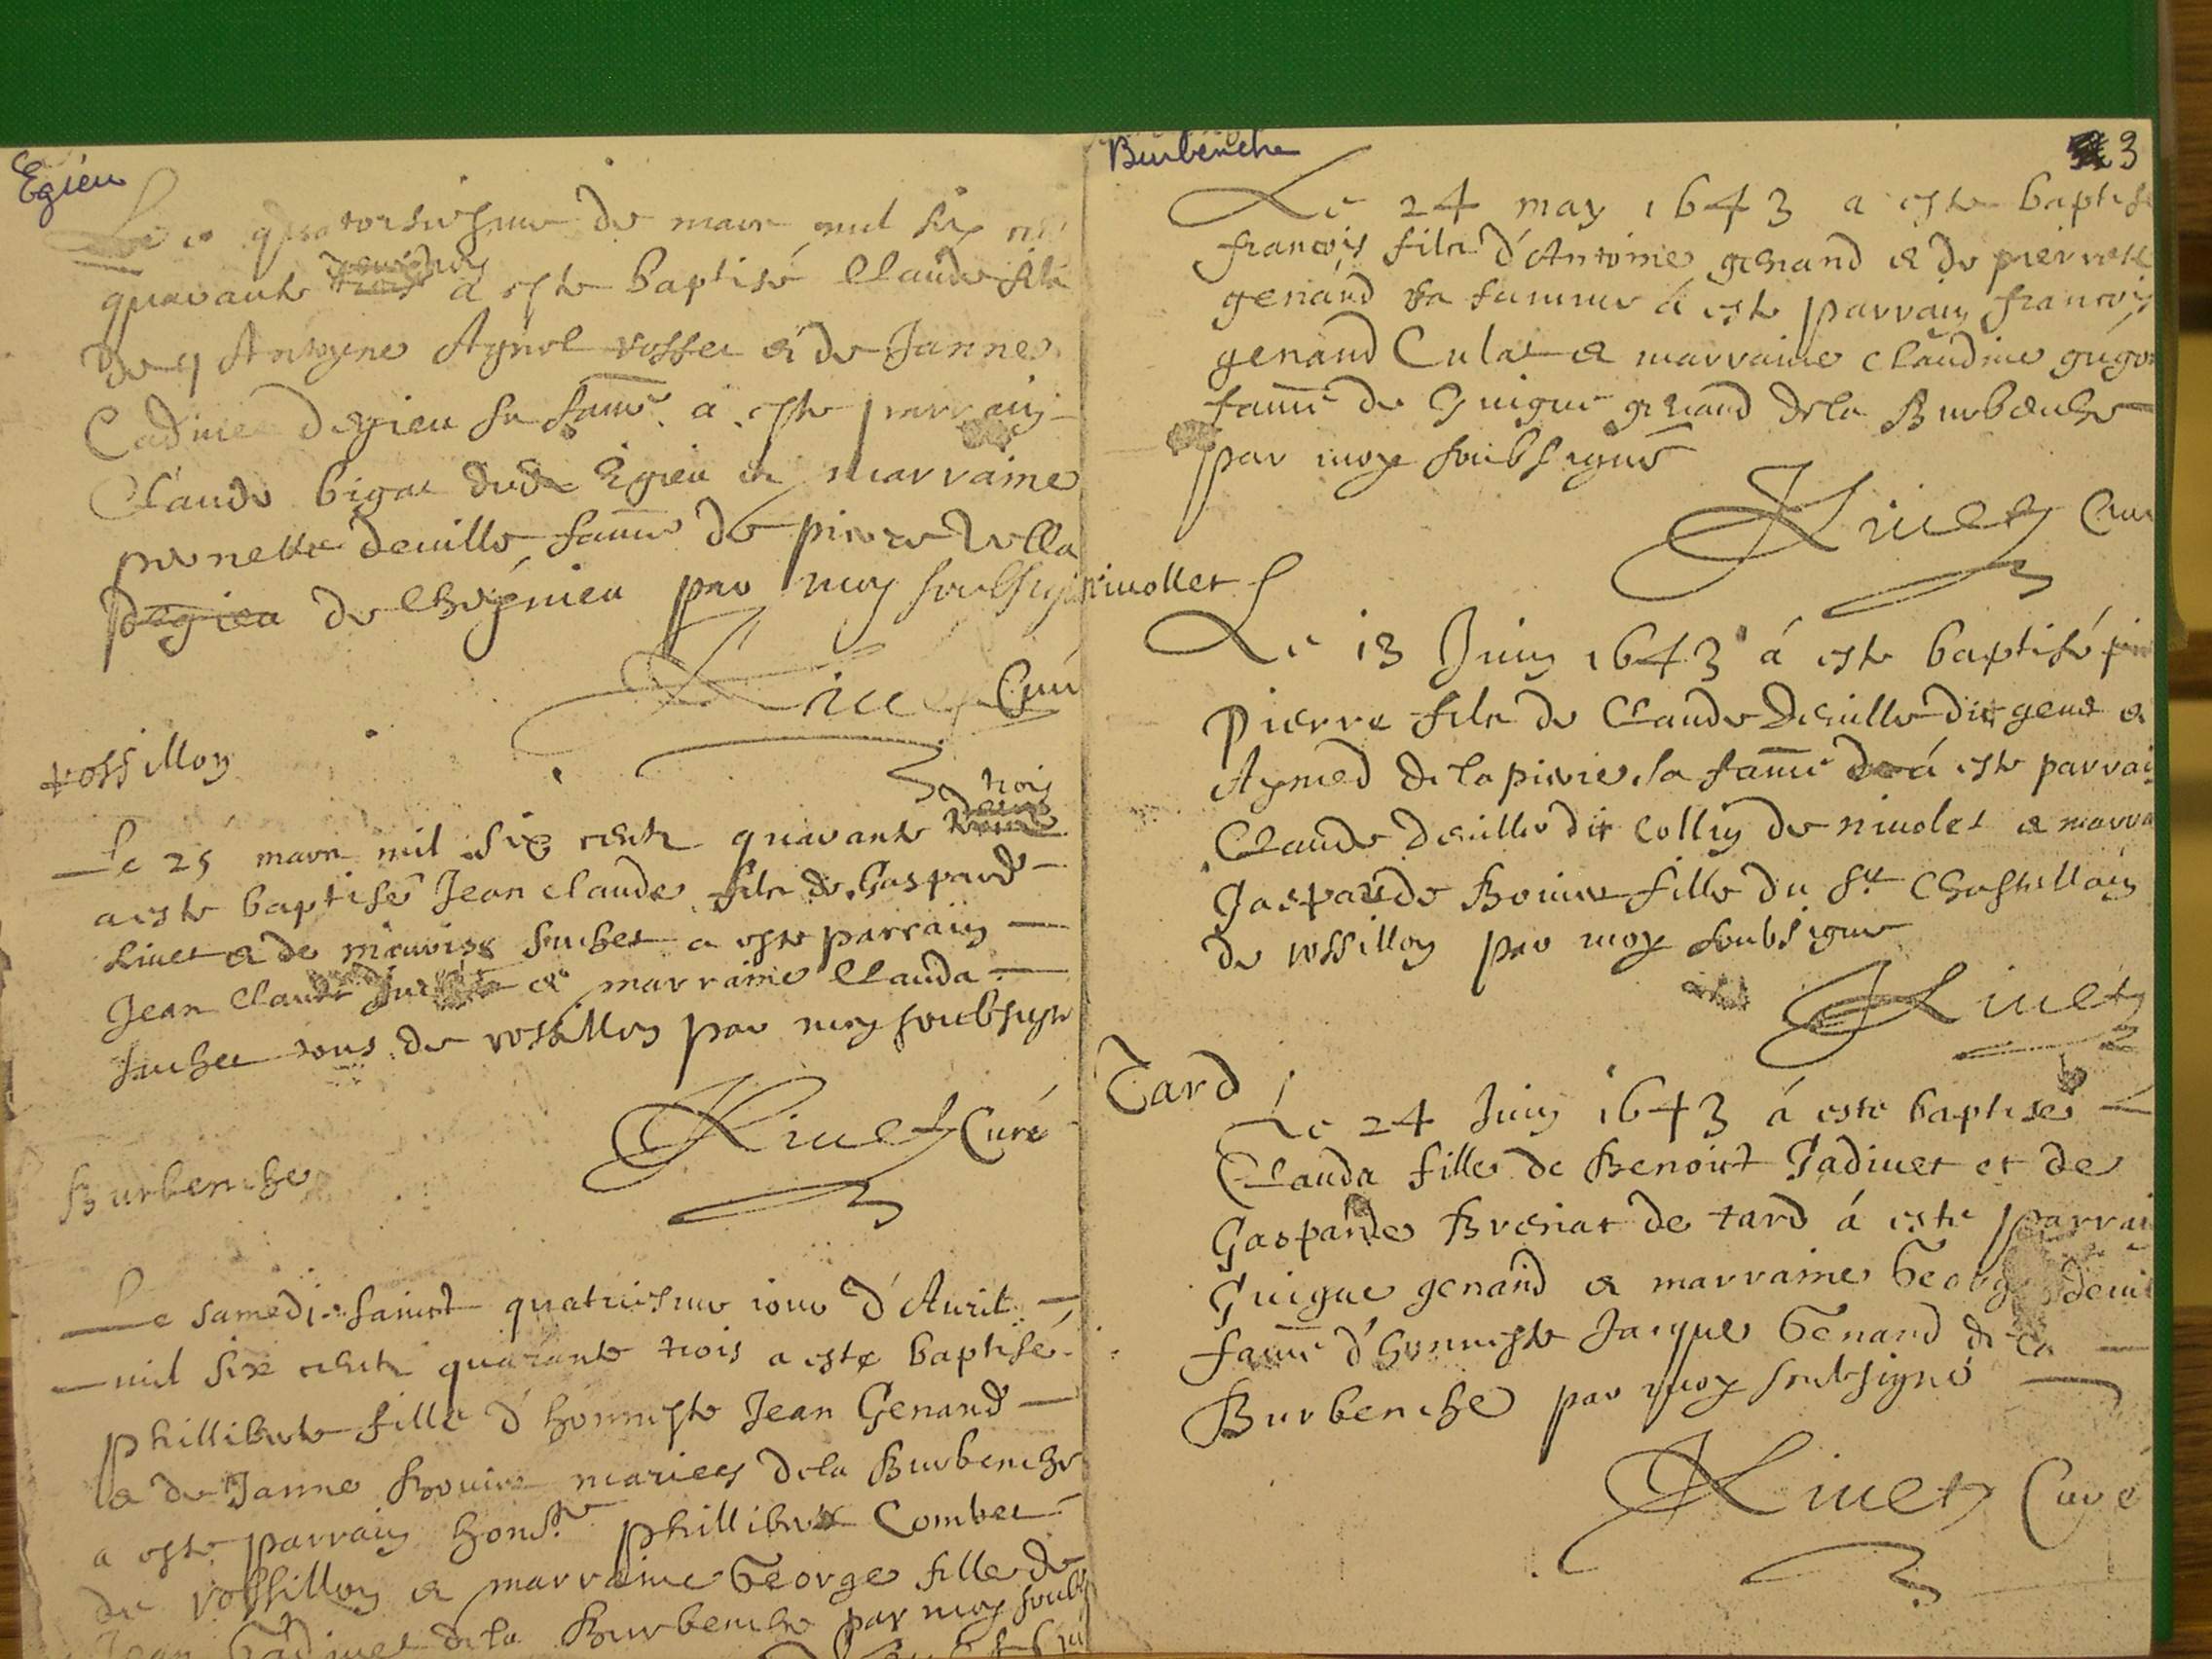 Egieu
quarante a este baptisé Claude filz
de Antoyne Aynol rosset & de Janne
Cadinet degieu sa fame a este parrain
Claude bigat dud Egieu et marraine
pernette deuille fame de pierre Vella
degieu de Cheynieu par moy soubsigné
Riuet Curé
rossillon
trois
Le 25 mars mil six centz quarante
a este baptisé Jean Claude filz de Gaspard
Riuet & de suchet a este parrain
Jean Claude & marraine Clauda
suchet tous de rossillon par moy soubsigne
Riuet Curé
Burbenche
Le samedi sainct quatriesme iour d'Auril
mil six centz quarante trois a este baptisé
Philliberte fille d'honneste Jean Genand
& de Janne Bouier mariees de la Burbenche
a este parrain honste Phillibert Combet
de rossillon & marraine George fille de
Jean Gadiuet de la Burbenche par moy soubs
Burbenche
3
Le 24 may 1643 a este baptise
francois filz d'Antoine genand & de pierrette
genand sa famme a este parrain francois
genand Culat & marraine Claudine gugon
fame de Guigue genand de la Burbenche
par moy soubsigné
Riuet Curé
niuollet
Le 13 Juin 1643 á este baptisé
Pierre filz de Claude Deuille dit gene &
Aymed de lapierre sa fame á este parrain
Claude deuille dit Collin de niuolet & marra
Gasparde Bouier fille du Sr Chastellain
de rossillon par moy soubsigne
Riuet
Tard
Le 24 Juin 1643 á este baptise
Clauda fille de Benoict Gadiuet et de
Gasparde Brenat de tard á este parrai
Guigue genand & marraine George deuil
fame d'honneste Jacques Genand de la
Burbenche par moy soubsigné
Riuet Curé